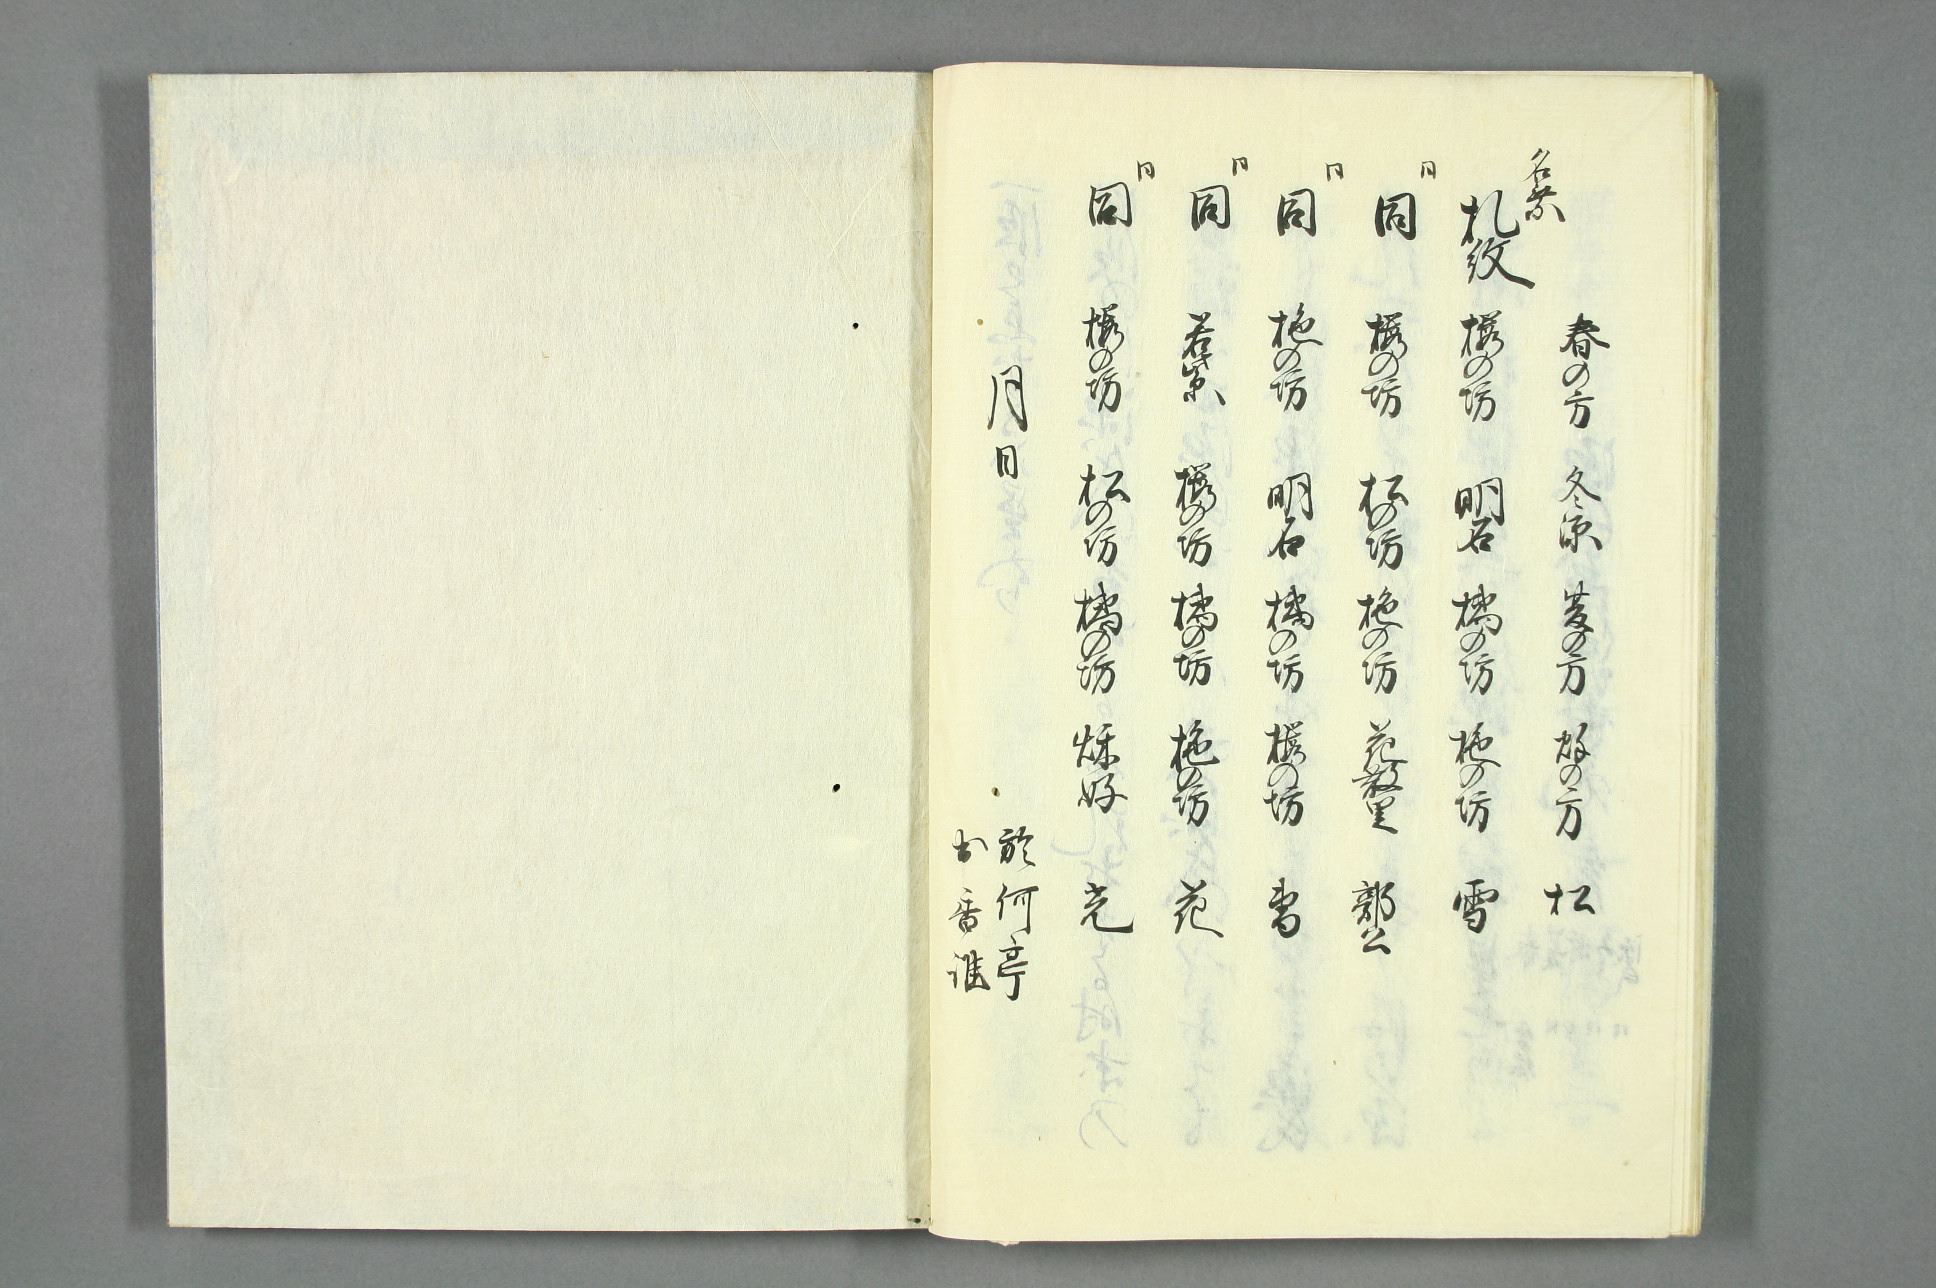 春の方 冬 の方 の方 松
名乗
札紋 櫻の坊 明石 橘の坊 の坊 雪
同
同 櫻の坊 松の坊 の坊 花散里 郭公
同
同 の坊 明石 橘の坊 櫻の坊
同
同 若紫 櫻の坊 橘の坊 の坊 花
同
同 櫻の坊 松の坊 橘の坊 秋好 光
月日
於何亭
出香誰